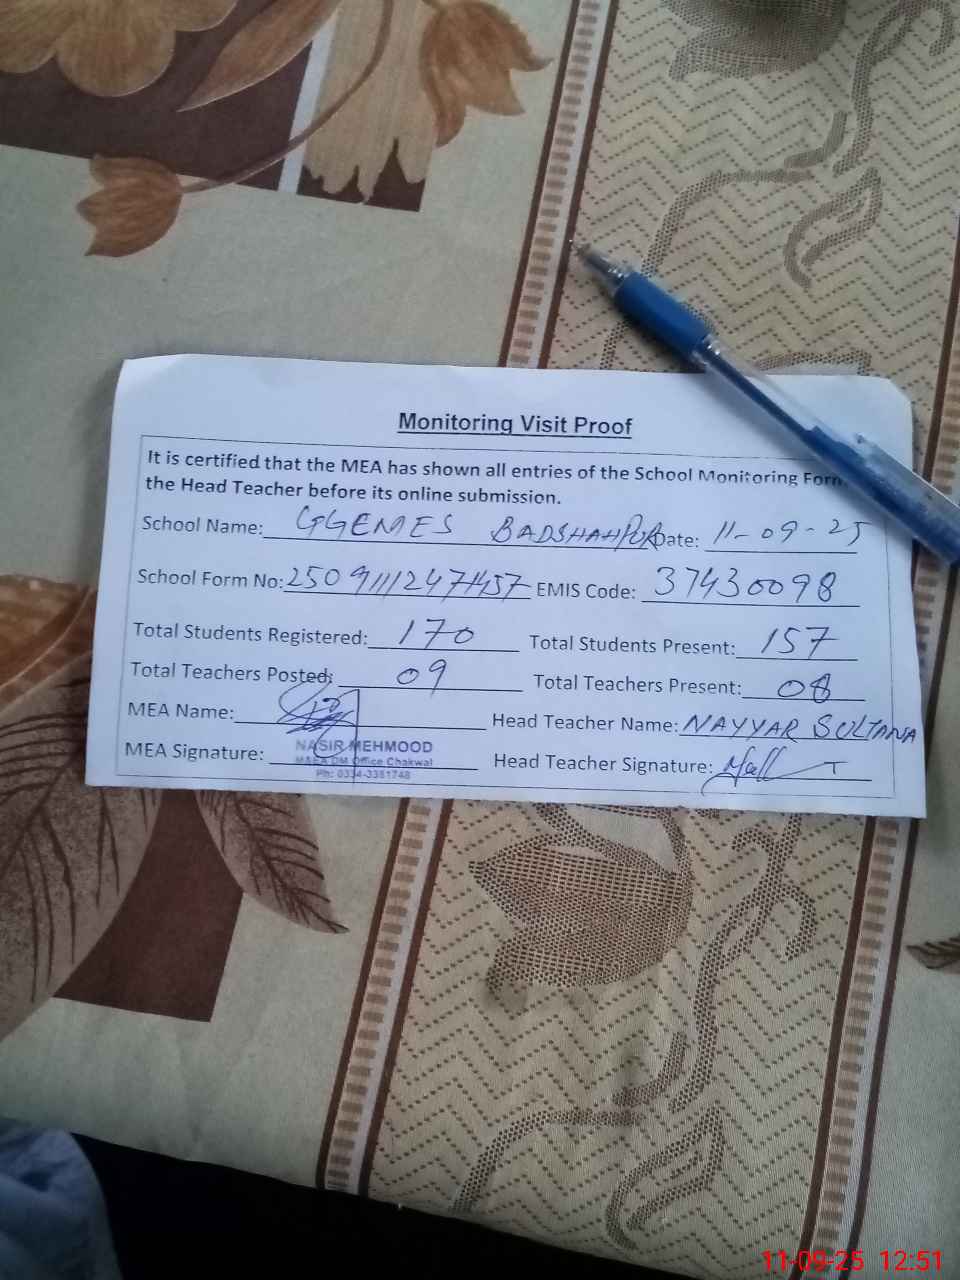 Monitoring Visit Proof
It is certified that the MEA has shown all entries of the School Monitoring Form
the Head Teacher before its online submission.
School Name: GGEMES BADSHAHPUR Date: 11-09-25
School Form No: EMIS Code: 37430098
Total Students Registered: 170 Total Students Present: 157
Total Teachers Posted: 09 Total Teachers Present: 08
MEA Name: Head Teacher Name: NAYYAR SULTANA
MEA Signature: NASIR MEHMOOD Head Teacher Signature:
M&EA DM Office Chakwal
Ph: 0334-3381748
11-09-25 12:51